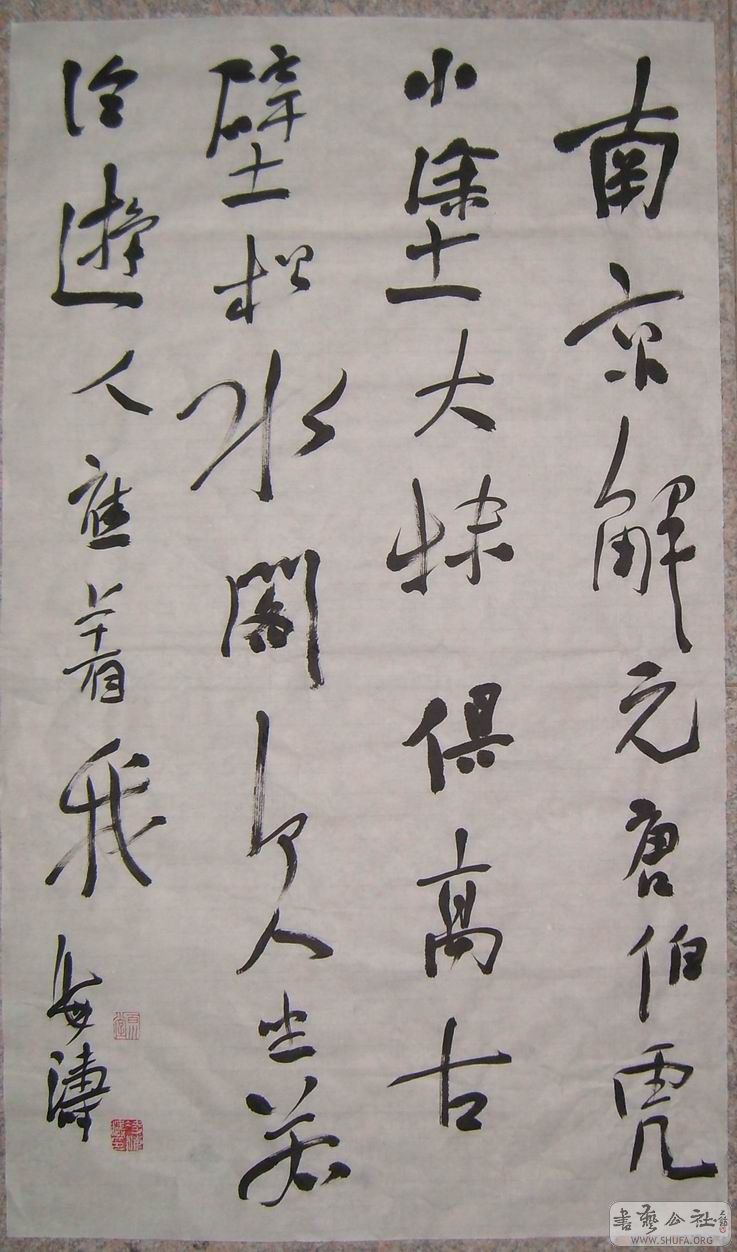 南京解元唐伯虎
小塗大抹俱高古
壁松水閣何人坐若
論遊人應着我
海濤
書藝公社
WWW.SHUFA.ORG